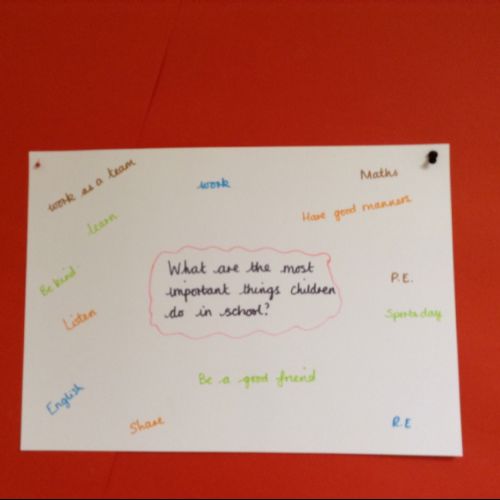 work as a team
work
Maths
learn
Have good manners
Be kind
What are the most
important things children
do in school?
P.E.
Listen
Sports day
Be a good friend
English
Share
R.E